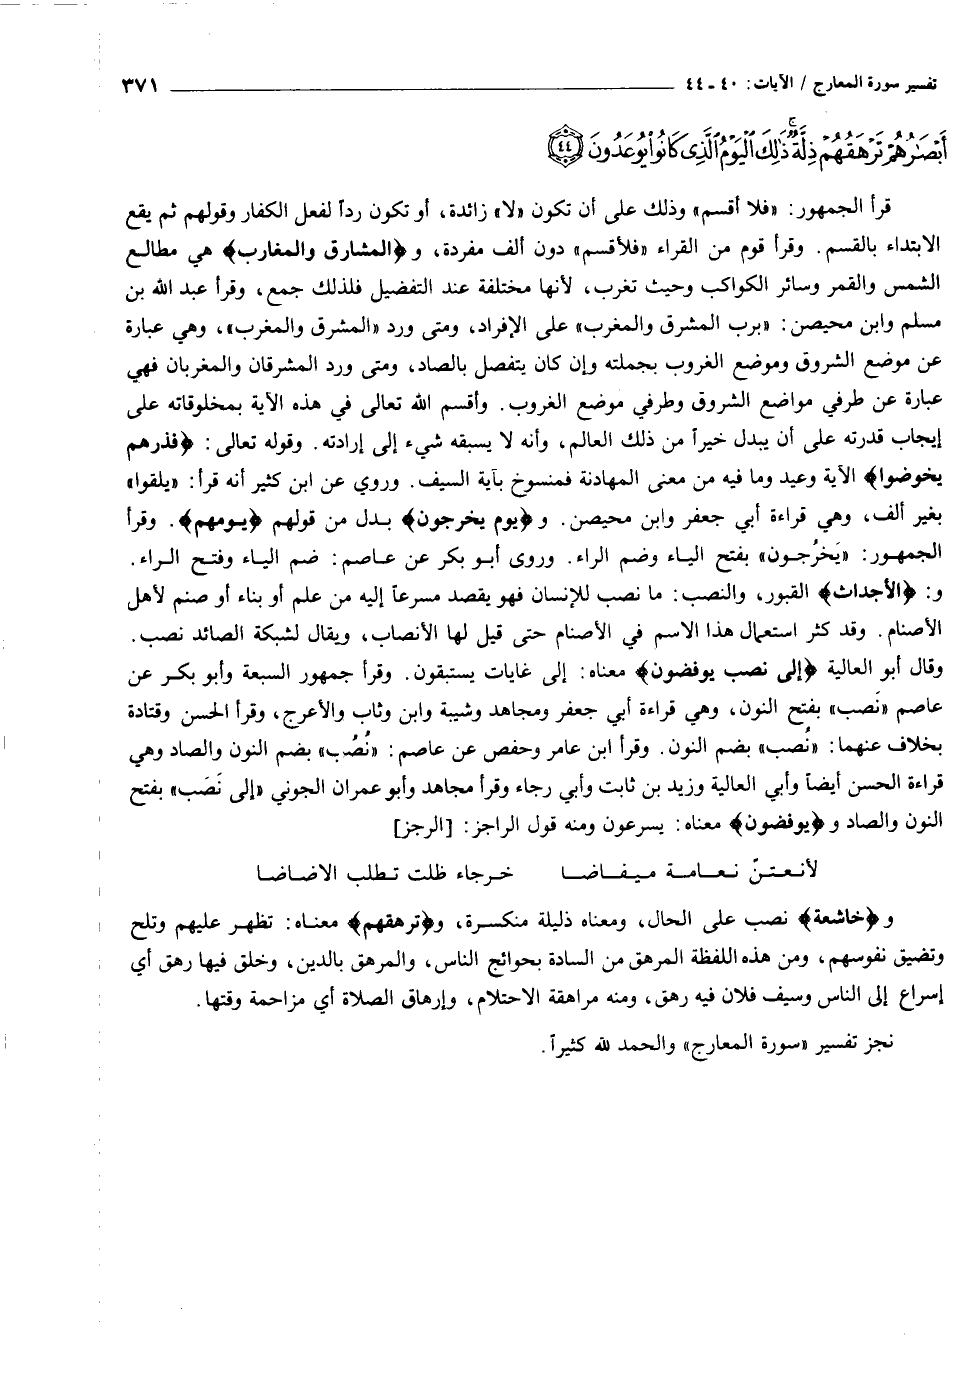 تفسير سورة المعارج / الآيات: ٤٠ ـ ٤٤ ٣٧١
أَبْصَٰرُهُمْ تَرْهَقُهُمْ ذِلَّةٌ ذَٰلِكَ ٱلْيَوْمُ ٱلَّذِى كَانُوا۟ يُوعَدُونَ ٤٤
قرأ الجمهور: «فلا أقسم» وذلك على أن تكون «لا» زائدة، أو تكون رداً لفعل الكفار وقولهم ثم يقع
الابتداء بالقسم. وقرأ قوم من القراء «فلأقسم» دون ألف مفردة، و ﴿المشارق والمغارب﴾ هي مطالع
الشمس والقمر وسائر الكواكب وحيث تغرب، لأنها مختلفة عند التفضيل فلذلك جمع، وقرأ عبد الله بن
مسلم وابن محيصن: «برب المشرق والمغرب» على الإفراد، ومتى ورد «المشرق والمغرب»، وهي عبارة
عن موضع الشروق وموضع الغروب بجملته وإن كان يتفصل بالصاد، ومتى ورد المشرقان والمغربان فهي
عبارة عن طرفي مواضع الشروق وطرفي موضع الغروب. وأقسم الله تعالى في هذه الآية بمخلوقاته على
إيجاب قدرته على أن يبدل خيراً من ذلك العالم، وأنه لا يسبقه شيء إلى إرادته. وقوله تعالى: ﴿فذرهم
يخوضوا﴾ الآية وعيد وما فيه من معنى المهادنة فمنسوخ بآية السيف. وروي عن ابن كثير أنه قرأ: «يلقوا»
بغير ألف، وهي قراءة أبي جعفر وابن محيصن. و ﴿يوم يخرجون﴾ بدل من قولهم ﴿يومهم﴾. وقرأ
الجمهور: «يَخرُجون» بفتح الياء وضم الراء. وروى أبو بكر عن عاصم: ضم الياء وفتح الراء.
و: ﴿الأجداث﴾ القبور، والنصب: ما نصب للإنسان فهو يقصد مسرعاً إليه من علم أو بناء أو صنم لأهل
الأصنام. وقد كثر استعمال هذا الاسم في الأصنام حتى قيل لها الأنصاب، ويقال لشبكة الصائد نصب.
وقال أبو العالية ﴿إلى نصب يوفضون﴾ معناه: إلى غايات يستبقون. وقرأ جمهور السبعة وأبو بكر عن
عاصم «نَصب» بفتح النون، وهي قراءة أبي جعفر ومجاهد وشيبة وابن وثاب والأعرج، وقرأ الحسن وقتادة
بخلاف عنهما: «نُصب» بضم النون. وقرأ ابن عامر وحفص عن عاصم: «نُصُب» بضم النون والصاد وهي
قراءة الحسن أيضاً وأبي العالية وزيد بن ثابت وأبي رجاء وقرأ مجاهد وأبو عمران الجوني «إلى نَصَب» بفتح
النون والصاد و ﴿يوفضون﴾ معناه: يسرعون ومنه قول الراجز: [الرجز]
لأنعتنّ نعامة ميفاضا خرجاء ظلت تطلب الاضاضا
و ﴿خاشعة﴾ نصب على الحال، ومعناه ذليلة منكسرة، و﴿ترهقهم﴾ معناه: تظهر عليهم وتلح
وتضيق نفوسهم، ومن هذه اللفظة المرهق من السادة بحوائج الناس، والمرهق بالدين، وخلق فيها رهق أي
إسراع إلى الناس وسيف فلان فيه رهق، ومنه مراهقة الاحتلام، وإرهاق الصلاة أي مزاحمة وقتها.
نجز تفسير «سورة المعارج» والحمد لله كثيراً.